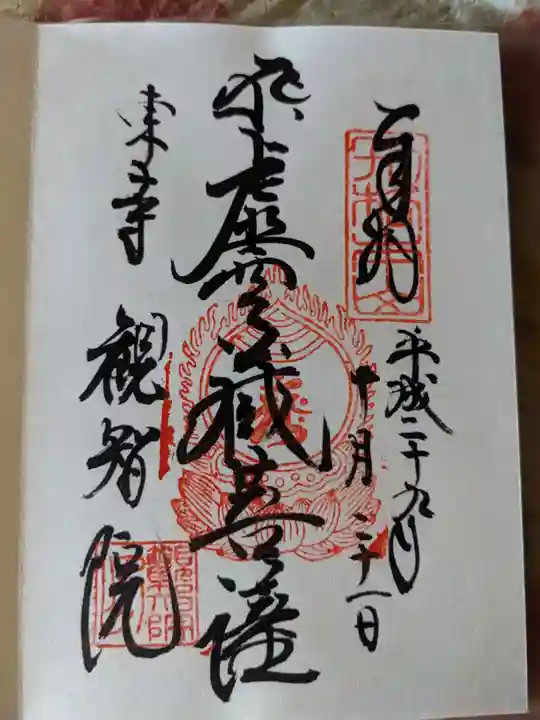 奉拝
平成二十九年
十月三十一日
五大虚空蔵菩薩
東寺
観智院